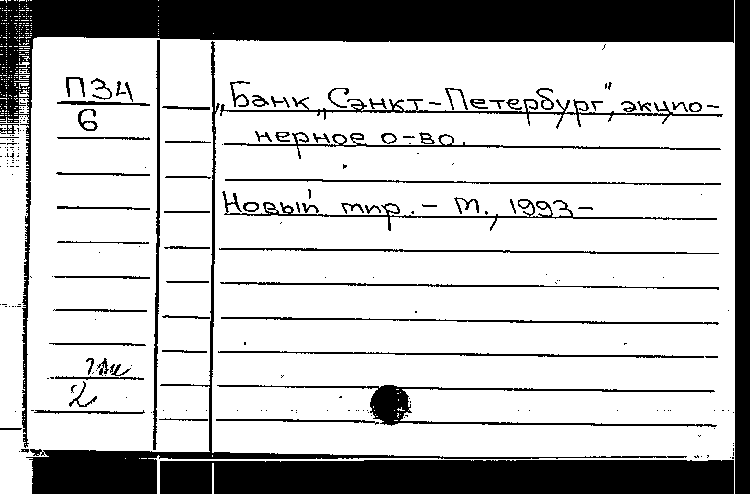 П34
6
„Банк „Санкт-Петербург", акцио-
нерное о-во.
Новый мир. – М., 1993–
2